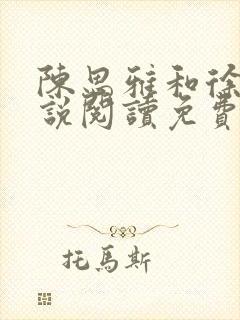 陳思雅和徐
說閱讀免費
托馬斯